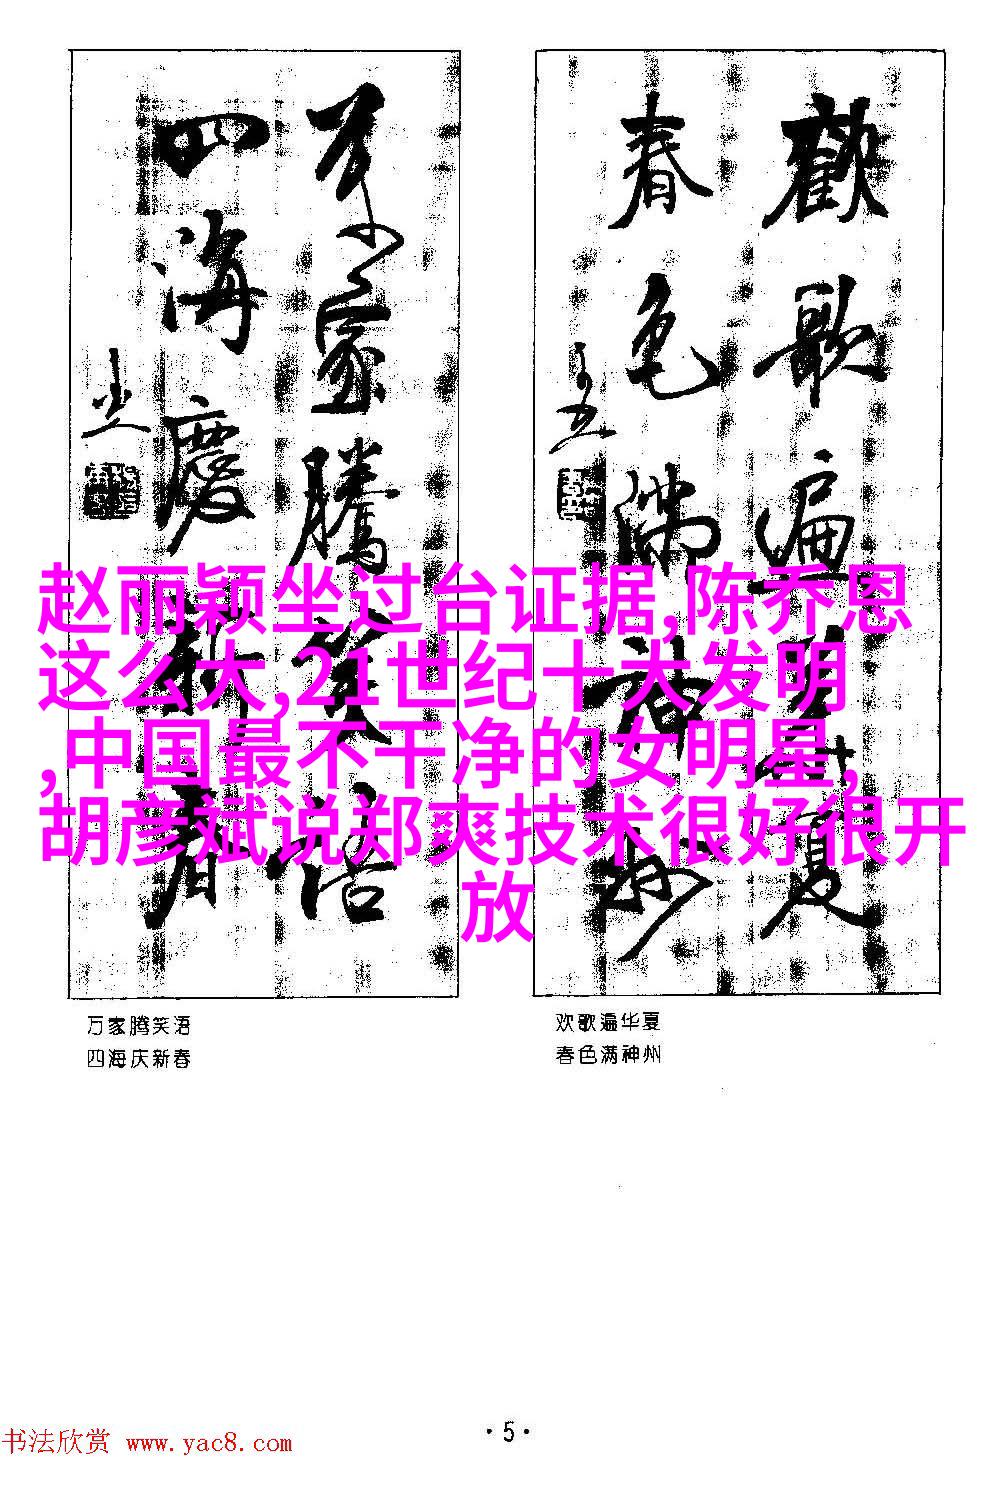 歡歌遍華夏
春色滿神州
萬家騰笑語
四海慶新春
赵丽颖坐过台证据,陈乔恩
这么大,21世纪十大发明
,中国最不干净的女明星,
胡彦斌说郑爽技术很好很开
放
万家腾笑语
四海庆新春
欢歌遍华夏
春色满神州
·5·
书法欣赏 www.yac8.com